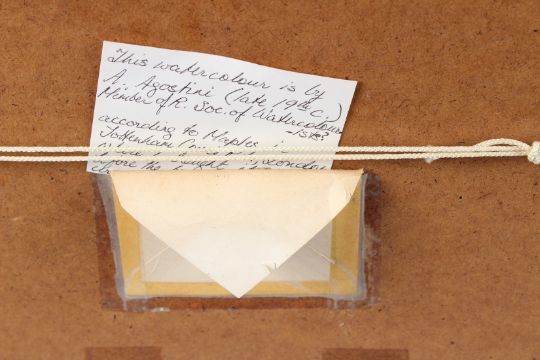 This watercolour is by
A. Agostini (late 19th C.)
Member of R. Soc. of Watercolour
-ists?
according to Maples in
Tottenham Court
where bought
before the